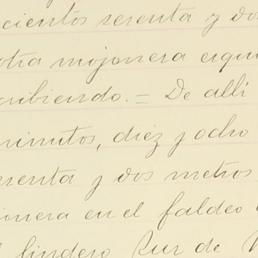 cientos sesenta y dos
otra mojonera esqui
cribiendo. = De allí
minutos, diez y ocho
senta y dos metros
onera en el faldeo
lindero Sur de